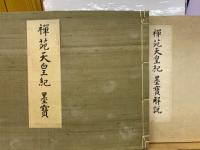 禪苑天皇紀墨寶
禪苑天皇紀墨寶解説